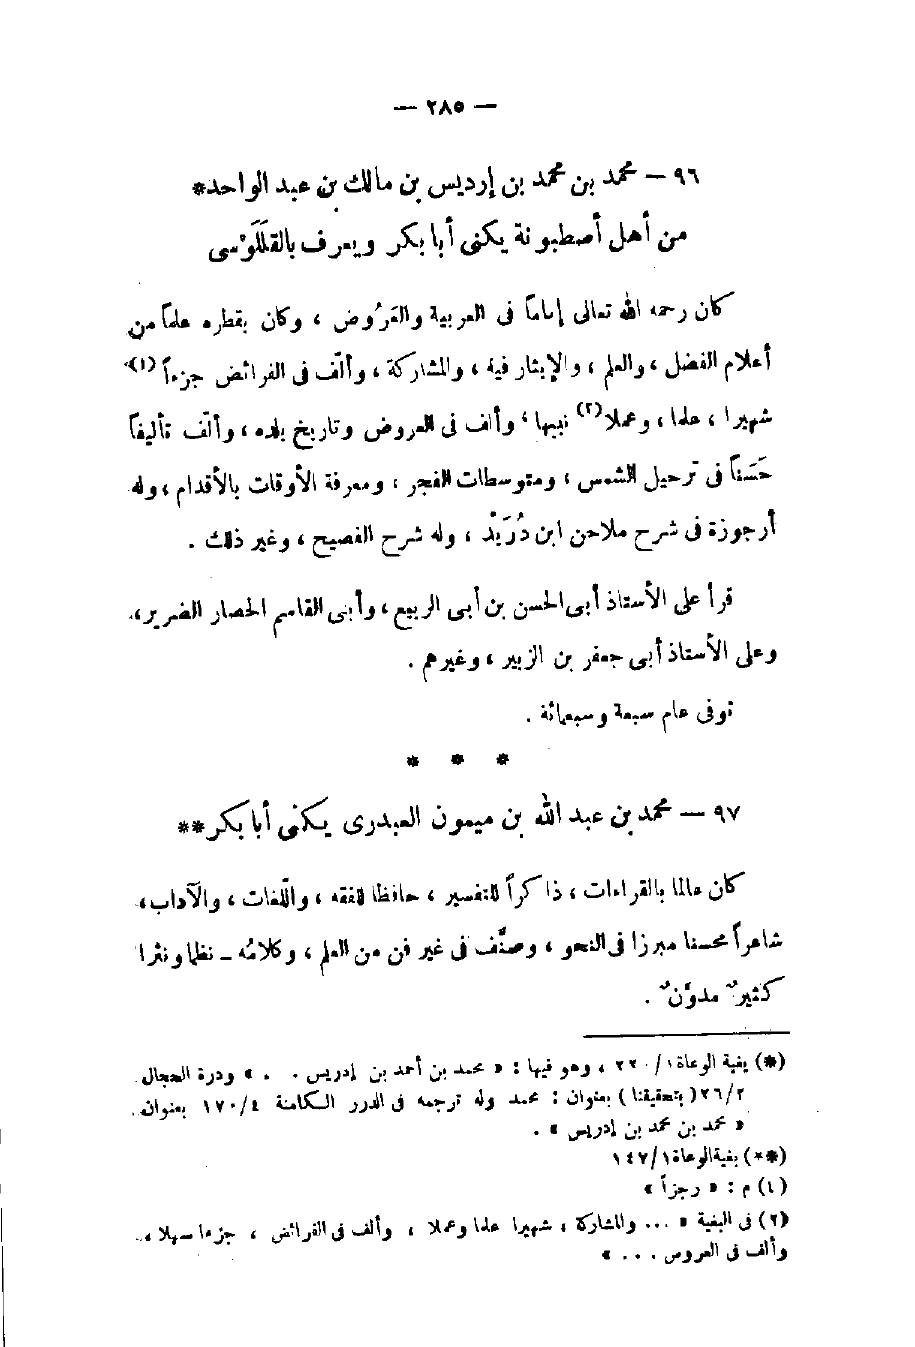 — ٢٨٥ —
٩٦ — محمد بن محمد بن إرديس بن مالك بن عبد الواحد*
من أهل أصطبونة يكنى أبا بكر ويعرف بالقَلَلَوْسى
كان رحمه الله تعالى إماماً فى العربية والعَرُوض ، وكان بقطره علماً من
أعلام الفضل ، والعلم ، والإيثار فيه ، والمشاركة ، وألّف فى الفرائض جزءاً (١)
شهيرا ، علما ، وعملا (٢) نبيها ، وألف فى العروض وتاريخ بلده ، وألّف تأليفاً
حَسَناً فى ترحيل الشمس ، ومتوسطات الفجر ، ومعرفة الأوقات بالأقدام ، وله
أرجوزة فى شرح ملاحن ابن دُرَيْد ، وله شرح الفصيح ، وغير ذلك .
قرأ على الأستاذ أبى الحسن بن أبى الربيع ، وأبى القاسم الحصار الضرير ،
وعلى الأستاذ أبى جعفر بن الزبير ، وغيرهم .
توفى عام سبعة وسبعمائة .
* * *
٩٧ — محمد بن عبد الله بن ميمون العبدرى يكنى أبا بكر**
كان عالما بالقراءات ، ذاكراً للتفسير ، حافظا للفقه ، واللّغات ، والآداب ،
شاعراً محسنا مبرزا فى النحو ، وصنَّف فى غير فن من العلم ، وكلامُه ـ نظما ونثرا
كثيرٌ مدوَّنٌ .
(*) بغية الوعاة ١/٢٢٠ ، وهو فيها : « محمد بن أحمد بن إدريس . . » ودرة الحجال
٢٦/٢ ( بتحقيقنا ) بعنوان : محمد وله ترجمه فى الدرر الكامنة ١٧٠/٤ بعنوان
« محمد بن محمد بن إدريس » .
(**) بغية الوعاة ١٤٧/١
(١) م : « رجزاً »
(٢) فى البغية « ... والمشاركة ، شهيرا علما وعملا ، وألف فى الفرائض ، جزءا سهلا ،
وألف فى العروس . . . »